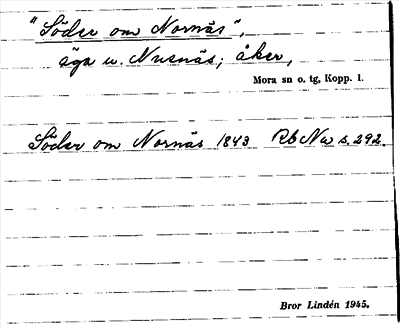 "Söder om Nornäs",
äga u. Nusnäs; åker,
Mora sn o. tg, Kopp. l.
Söder om Nornäs 1843 Rb Nw s. 292.
Bror Lindén 1945.